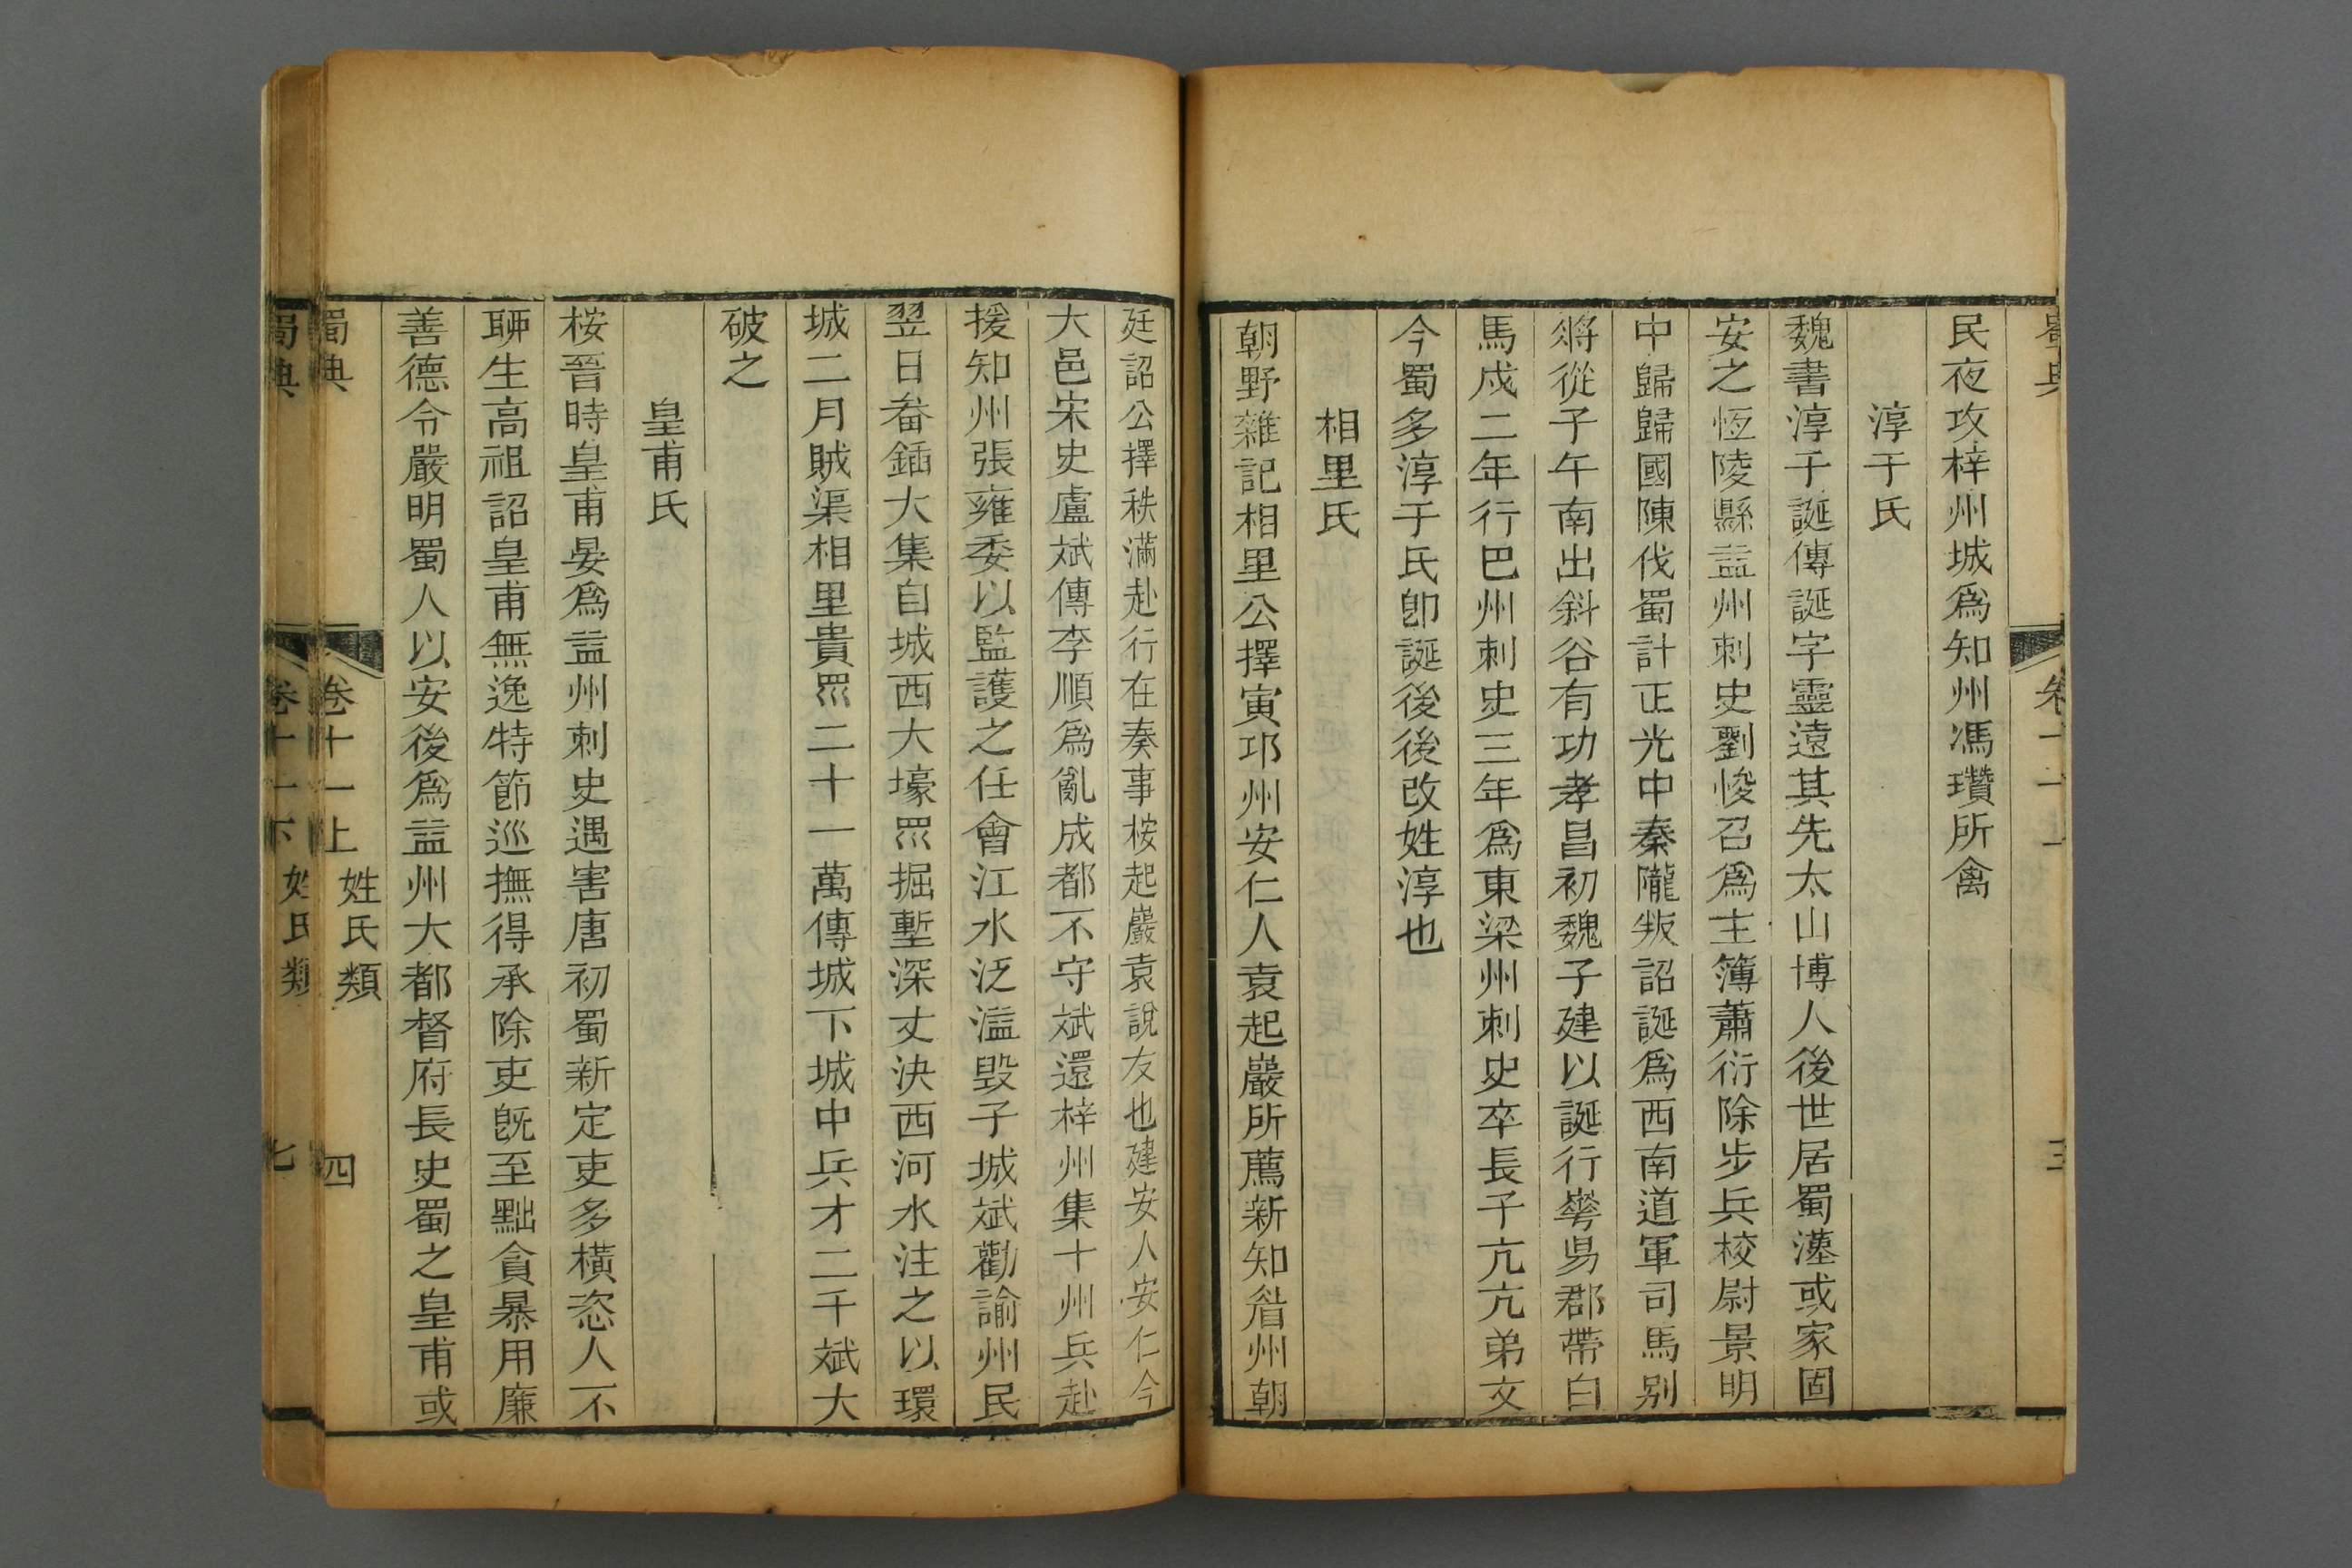 民夜攻梓州城爲知州馮瓚所禽
淳于氏
魏書淳于誕傳誕字靈遠其先太山博人後世居蜀漢或家固
安之恆陵縣益州刺史劉悛召爲主簿蕭衍除步兵校尉景明
中歸歸國陳伐蜀計正光中秦隴叛詔誕爲西南道軍司馬別
將從子午南出斜谷有功孝昌初魏子建以誕行華昜郡帶白
馬戍二年行巴州刺史三年爲東梁州刺史卒長子亢亢弟文
今蜀多淳于氏卽誕後後改姓淳也
相里氏
朝野雜記相里公擇寅邛州安仁人袁起巖所薦新知眉州朝
廷詔公擇秩滿赴行在奏事桉起巖袁說友也建安人安仁今
大邑宋史盧斌傳李順爲亂成都不守斌還梓州集十州兵赴
援知州張雍委以監護之任會江水泛溢毀子城斌勸諭州民
翌日畚鍤大集自城西大壕㓁掘塹深丈決西河水注之以環
城二月賊渠相里貴㓁二十一萬傳城下城中兵才二千斌大
破之
皇甫氏
桉晉時皇甫晏爲益州刺史遇害唐初蜀新定吏多橫恣人不
聊生高祖詔皇甫無逸特節巡撫得承除吏旣至黜貪暴用廉
善德令嚴明蜀人以安後爲益州大都督府長史蜀之皇甫或
蜀典 卷十一上 姓氏類 四
蜀典 卷十一下 姓氏類 七